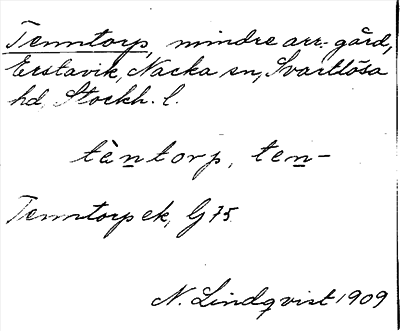 Tenntorp, mindre arr.-gård,
Erstavik, Nacka sn, Svartlösa
hd, Stockh. l.
tèntorp, ten-
Tenntorp ek, G 75.
N. Lindqvist 1909